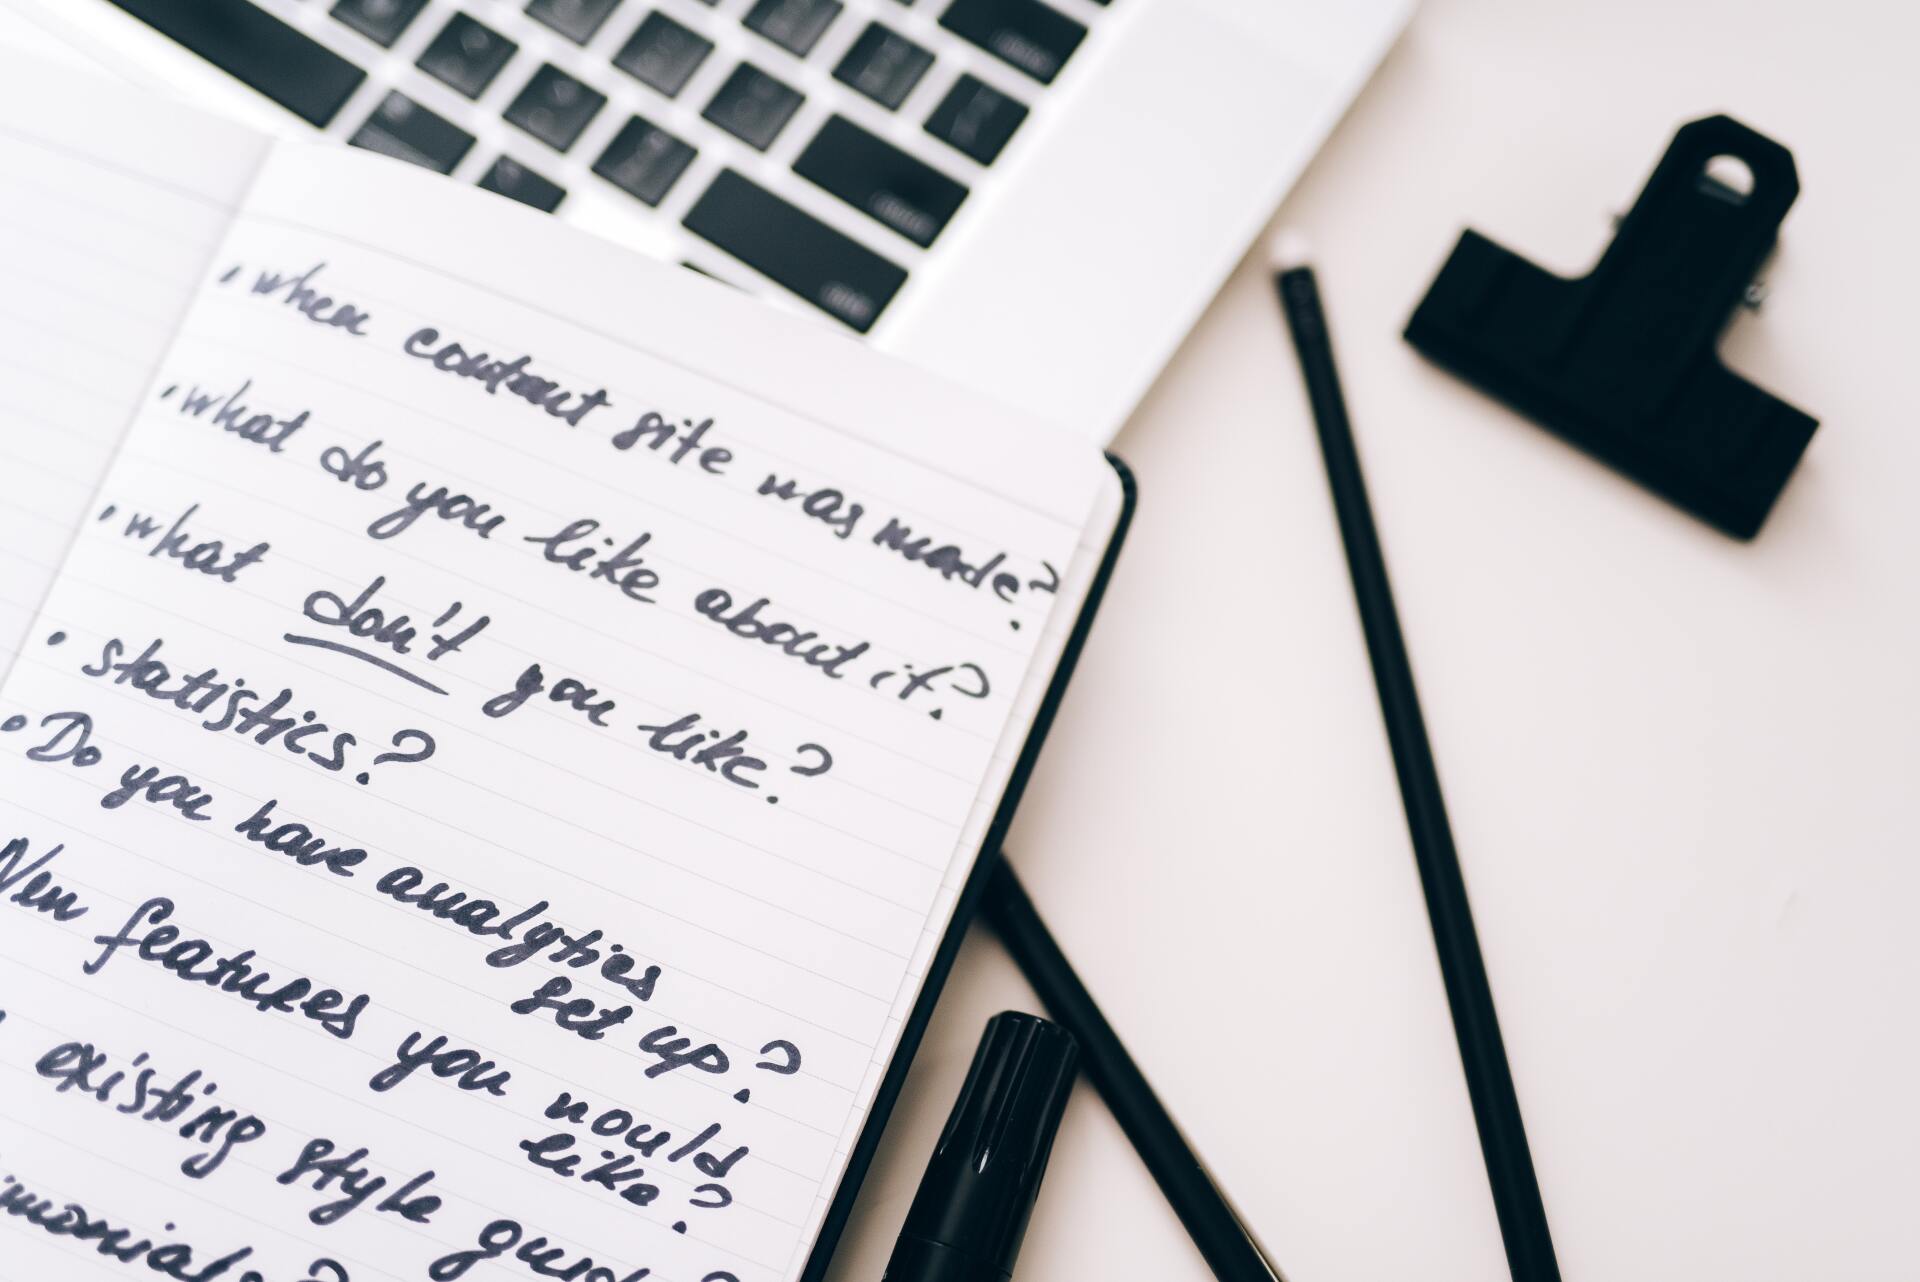 • when contant site was made?
• what do you like about it?
• what don't you like?
• statistics?
• Do you have analytics
set up?
New features you would
like?
existing style guid
?